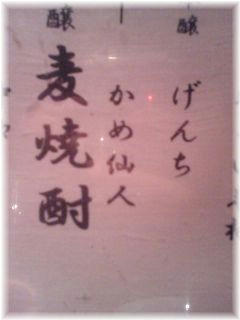 醸
げんち
かめ仙人
醸
麦焼酎